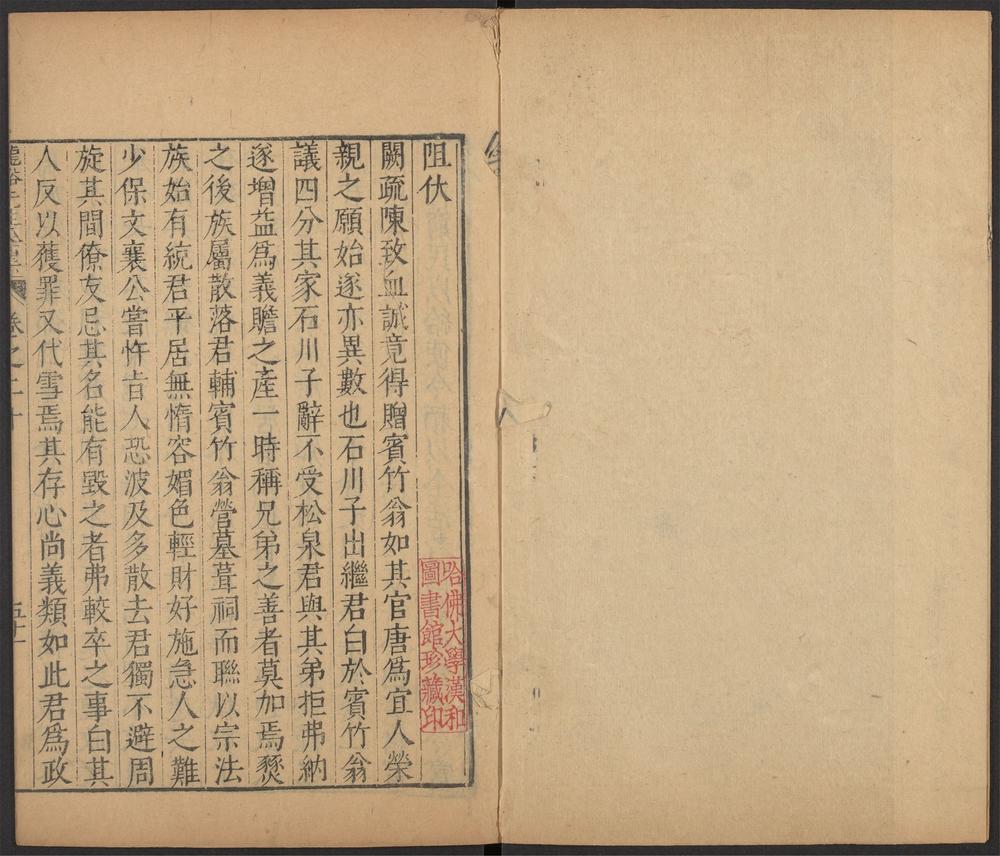 阻伏
闕疏陳致血誠竟得贈賓竹翁如其官唐爲宜人榮
親之願始遂亦異數也石川子出繼君白於賓竹翁
議四分其家石川子辭不受松泉君與其弟拒弗納
遂增益爲義贍之產一時稱兄弟之善者莫加焉燹
之後族屬散落君輔賓竹翁營墓葺祠而聯以宗法
族始有統君平居無惰容媚色輕財好施急人之難
少保文襄公嘗忤旨人恐波及多散去君獨不避周
旋其間僚友忌其名能有毀之者弗較卒之事白其
人反以獲罪又代雪焉其存心尚義類如此君爲政
卷之二十
五十一
哈佛大學漢和
圖書館珍藏印